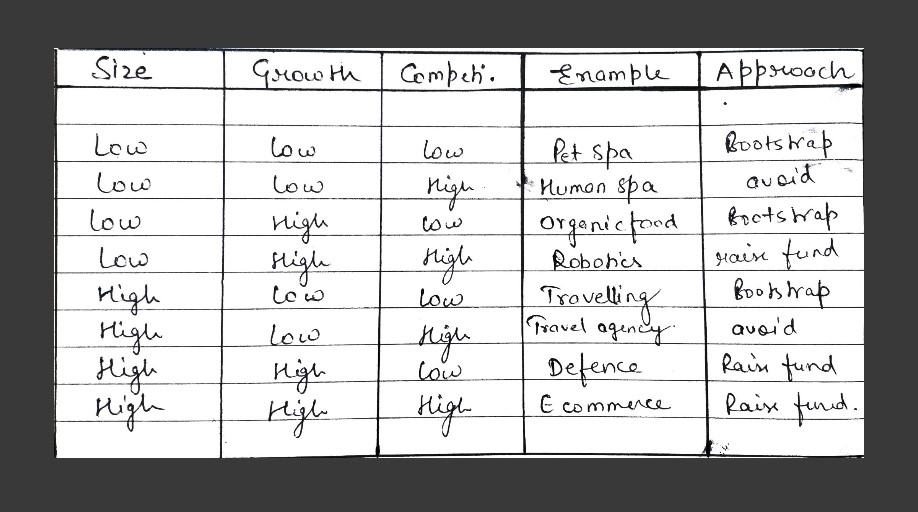 Size Growth Competi. Example Approach
Low Low Low Pet Spa Bootstrap
Low Low High Human Spa avoid
Low High Low Organic food Bootstrap
Low High High Robotics raise fund
High Low Low Travelling Bootstrap
High Low High Travel agency. avoid
High High Low Defence Raise fund
High High High E commerce Raise fund.